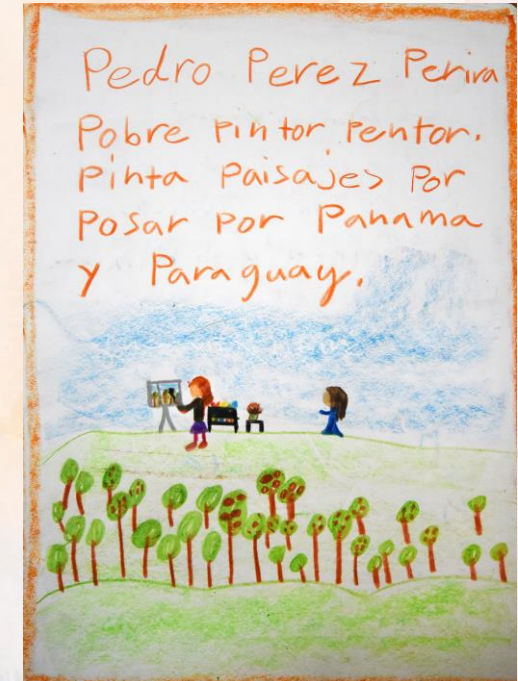 Pedro Perez Perira
Pobre pintor pentor.
pinta paisajes por
posar por Panama
y Paraguay.